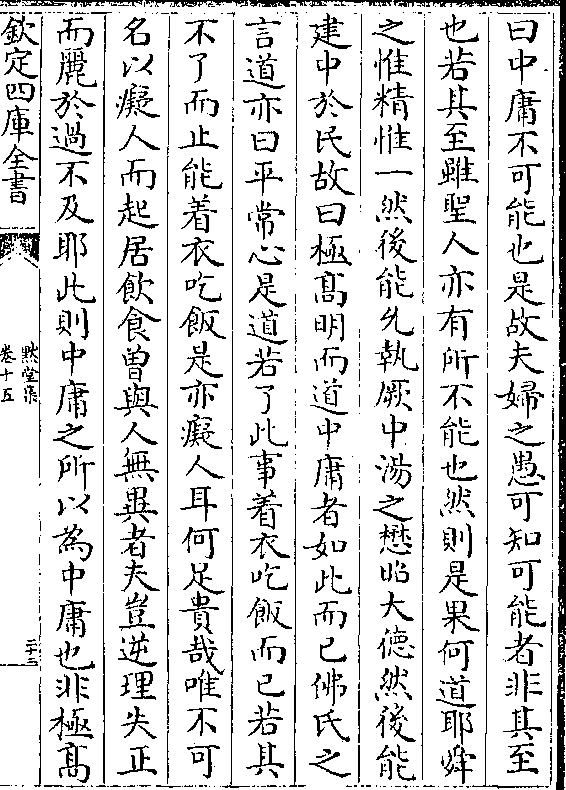 曰中庸不可能也是故夫婦之愚可知可能者非其至
也若其至雖聖人亦有所不能也然則是果何道耶舜
之惟精惟一然後能允執厥中湯之懋昭大德然後能
建中於民故曰極髙明而道中庸者如此而已佛氏之
言道亦曰平常心是道若了此事着衣吃飯而已若其
不了而止能着衣吃飯是亦癡人耳何足貴哉唯不可
名以癡人而起居飲食曽與人無異者夫豈逆理失正
而麗於過不及耶此則中庸之所以為中庸也非極髙
欽定四庫全書
默堂集
卷十五
二十三